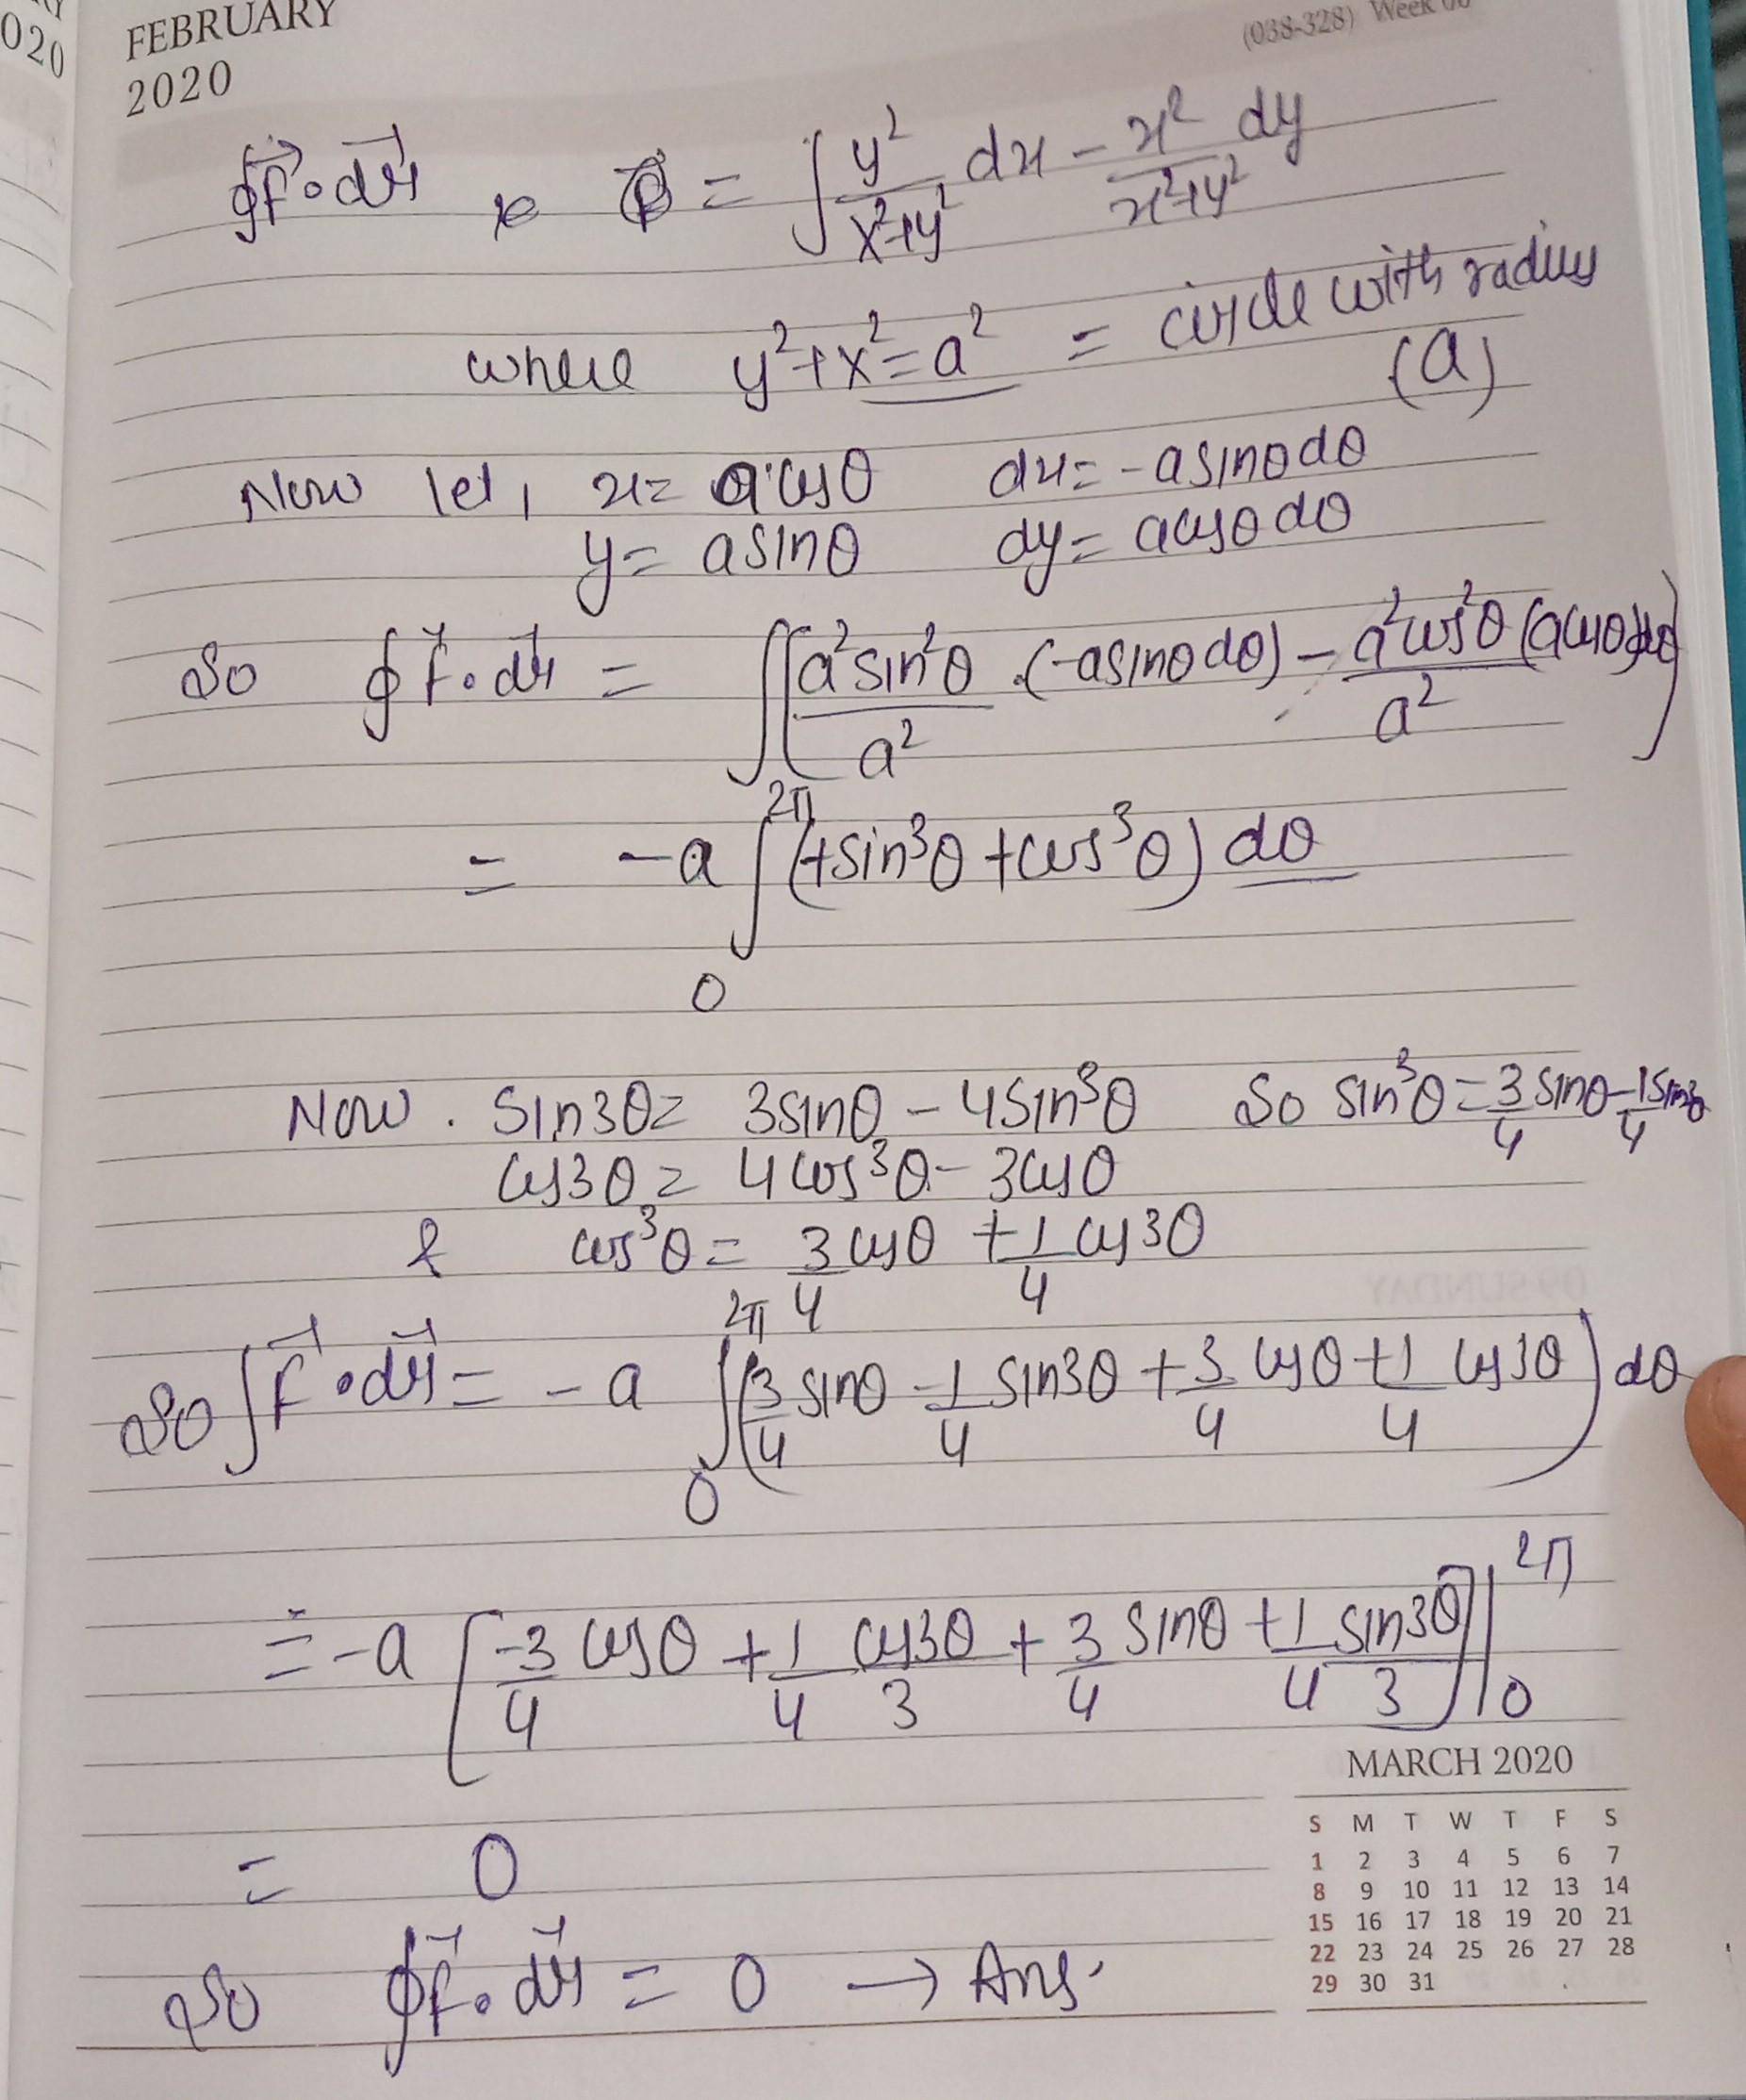 020
FEBRUARY
2020
(038-328) Week 06
∮F⃗·dr⃗ = ∫ y²/(x²+y²) dx - x²/(x²+y²) dy
where y²+x²=a² = circle with radius
(a)
Now let, x= acosθ dx= -asinθdθ
y= asinθ dy= acosθdθ
So ∮F⃗·dr⃗ = ∫(a²sin²θ/a² ·(-asinθdθ) - a²cos²θ/a² (acosθ)dθ)
= -a ∫₀^2π (+sin³θ+cos³θ) dθ
Now. sin3θ= 3sinθ - 4sin³θ So sin³θ = 3/4 sinθ - 1/4 sin3θ
cos3θ= 4cos³θ - 3cosθ
& cos³θ = 3/4 cosθ + 1/4 cos3θ
So ∫F⃗·dr⃗ = -a ∫₀^2π (3/4 sinθ - 1/4 sin3θ + 3/4 cosθ + 1/4 cos3θ) dθ
= -a [-3/4 cosθ + 1/4 cos3θ/3 + 3/4 sinθ + 1/4 sin3θ/3]|₀^2π
= 0
So ∮F⃗·dr⃗ = 0 → Ans.
MARCH 2020
S M T W T F S
1 2 3 4 5 6 7
8 9 10 11 12 13 14
15 16 17 18 19 20 21
22 23 24 25 26 27 28
29 30 31